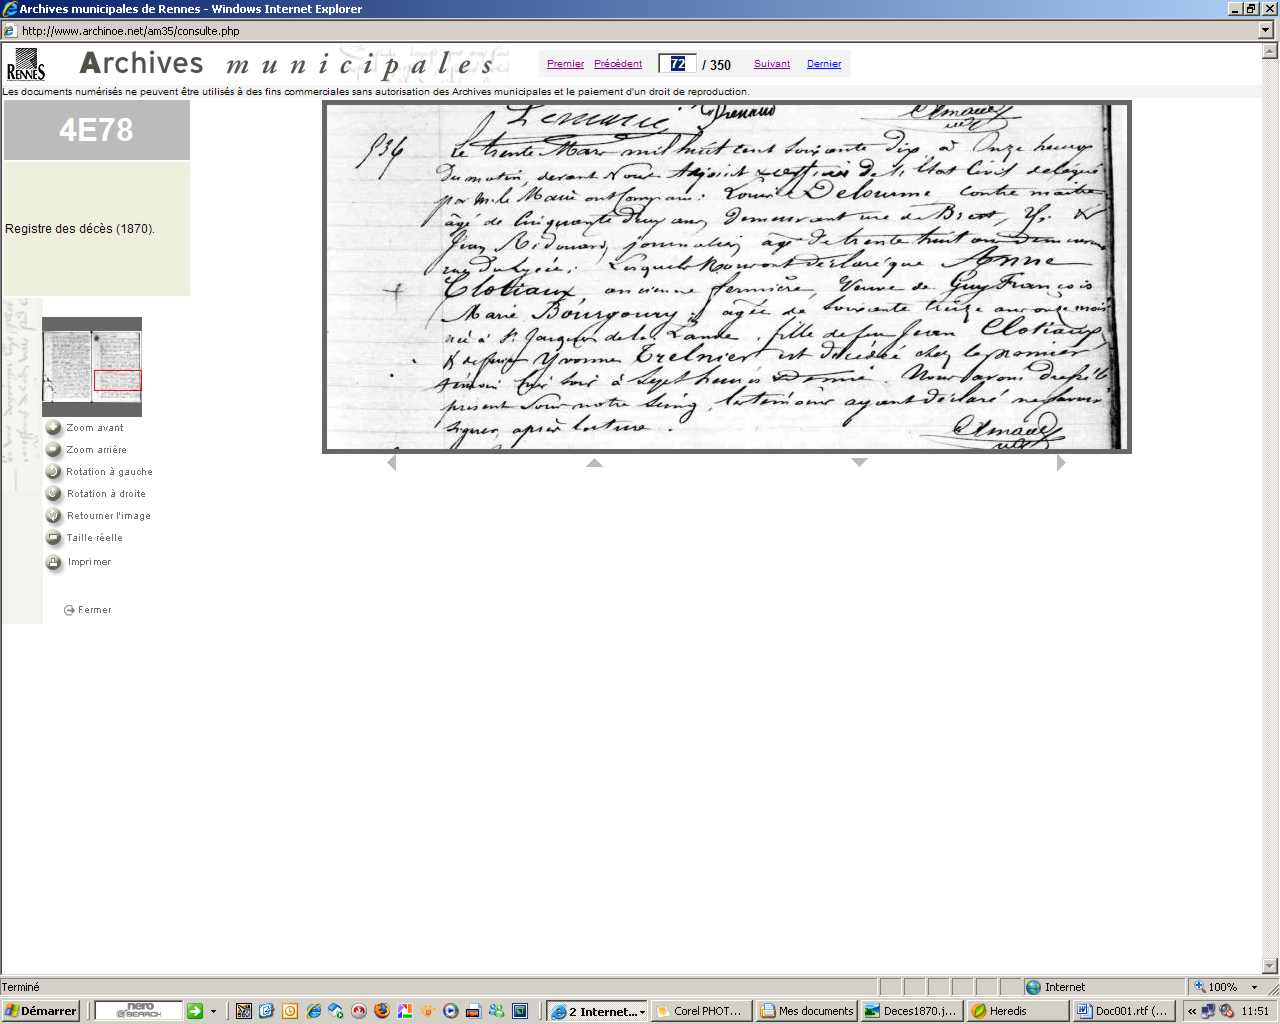 Archives municipales de Rennes - Windows Internet Explorer
http://www.archinoe.net/am35/consulte.php
RENNES
Archives municipales
Premier Précédent 72 / 350 Suivant Dernier
Les documents numérisés ne peuvent être utilisés à des fins commerciales sans autorisation des Archives municipales et le paiement d'un droit de reproduction.
4E78
Registre des décès (1870).
Zoom avant
Zoom arrière
Rotation à gauche
Rotation à droite
Retourner l'image
Taille réelle
Imprimer
Fermer
Le trente Mars mil huit cent soixante dix à Onze heures
du matin, devant Nous Adjoint officier de l'Etat Civil délégué
par M. le Maire ont comparu: Louis Delourme contre maitre
âgé de Cinquante deux ans, demeurant rue de Brest, &
Jean journalier, âgé de trente huit ans demeurant
rue du Lycée; Lesquels Nous ont déclaré que Anne
Clotiaux, ancienne fermière, Veuve de Guy François
Marie Bourgoury; âgée de soixante treize ans onze mois
née à St. Jacques de la Lande, fille de feu Jean Clotiaux
& de feue Yvonne Trelnier est décédée chez le premier
témoin hier soir à Sept heures & Demie. Nous avons dressé le
présent sous notre seing, les témoins ayant déclaré ne savoir
signer, après lecture.
Terminé
Internet
100%
Démarrer
nero
SEARCH
2 Internet...
Corel PHOT...
Mes documents
Deces1870.j...
Heredis
Doc001.rtf (...
11:51